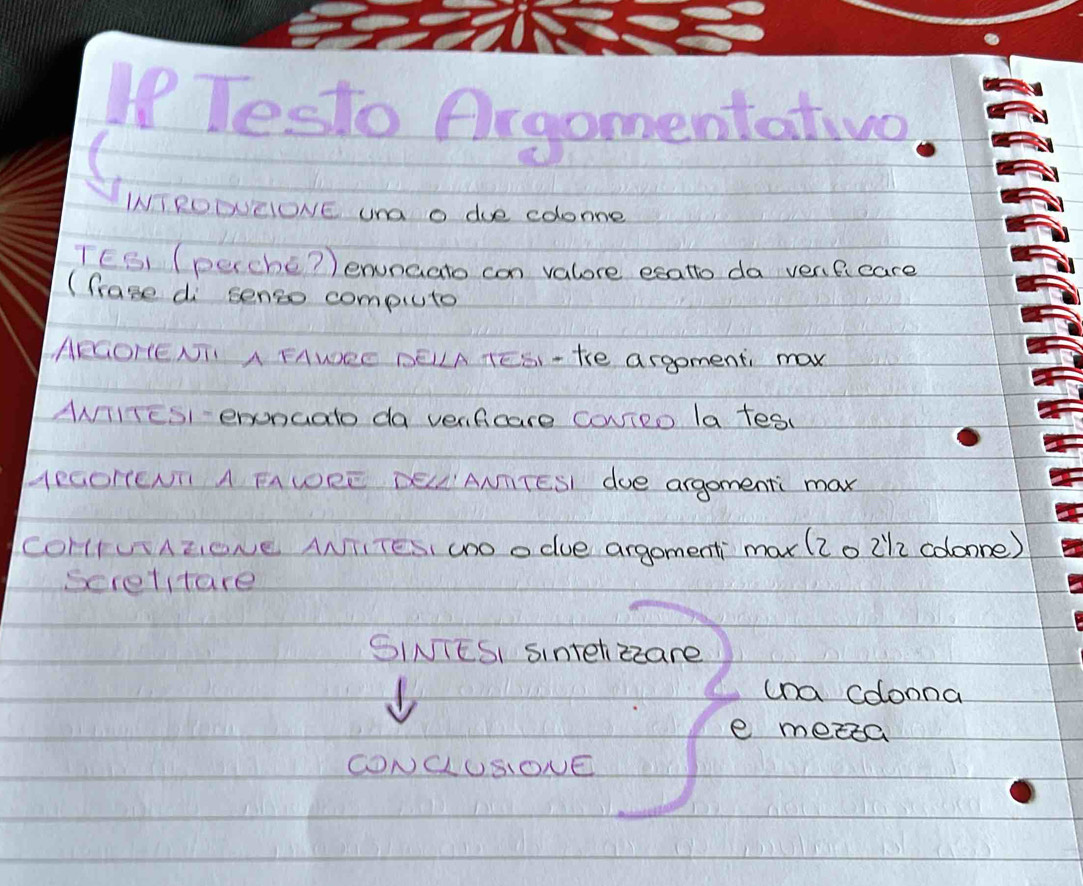 Il Testo Argomentativo
INTRODUZIONE una o due colonne
TESI (perché?) enunciato con valore esatto da verificare
(frase di senso compiuto
ARGOMENTI A FAVORE DELLA TESI - tre argomenti max
ANTITESI - enunciato da verificare CONTRO la tesi
ARGOMENTI A FAVORE DELL'ANTITESI due argomenti max
COMFUTAZIONE ANTITESI uno o due argomenti max (2 o 2 1/2 colonne)
Scretitare
SINTESI sintetizzare
una colonna
e mezza
CONCLUSIONE